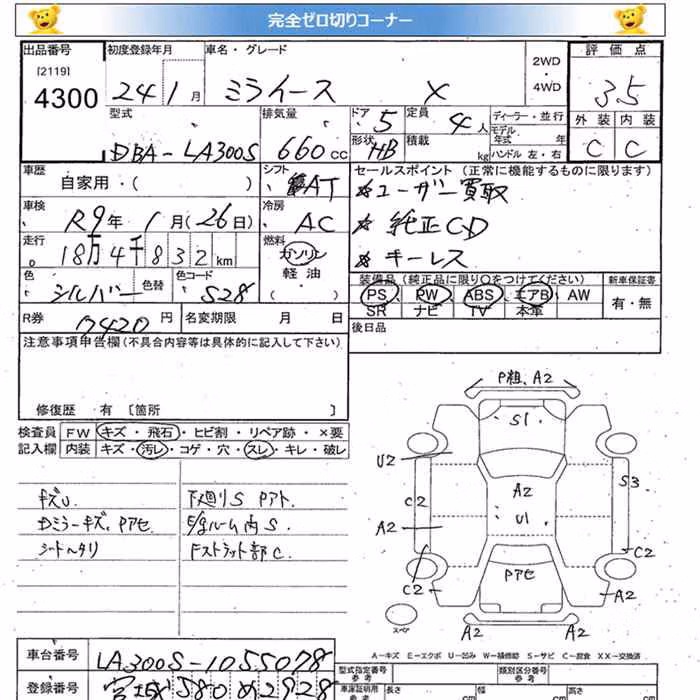 完全ゼロ切りコーナー
出品番号 初度登録年月 車名・グレード 2WD ・ 4WD 評価点
[2119] 4300 24 1月 ミライース X 3.5
型式 排気量 ドア 5 定員 4人 ディーラー・並行 外装 内装
モデル年式 年
DBA-LA300S 660cc 形状 HB 積載 kg ハンドル 左・右 C C
車歴 シフト セールスポイント (正常に機能するものに限ります)
自家用・( ) AT *ユーザー買取
車検 冷房 *純正CD
R9年 1月(26日) AC
走行 燃料 *キーレス
18万4千832km ガソリン
軽油
( )
色 色替 色コード 装備品 (純正品に限り○をつけてください) 新車保証書
シルバー S28 PS PW ABS エアB AW 有・無
SR ナビ TV 本革
R券 円 名変期限 月 日 後日品
7420
注意事項申告欄(不具合内容等は具体的に記入して下さい)
修復歴 有 〔箇所 〕
検査員 FW キズ・飛石・ヒビ割・リペア跡・×要
記入欄 内装 キズ・汚レ・コゲ・穴・スレ・キレ・破レ
キズU 下廻りS Pアト
Dミラーキズ、Pアセ E/gルーム内S
シートヘタリ Fストラット部C
P粗、A2
S1
U2
C2 A2 S3
A2 U1
C2
C2 Pアセ
A2 A2
スペア
A-キズ E-エクボ U-凹み W-補修跡 S-サビ C-腐食 XX-交換済
車台番号 LA300S-1055078 型式指定番号 参考 類別区分番号 参考
登録番号 宮城 580 め 2928 車庫証明用 参考 長さ cm 幅 cm 高さ cm